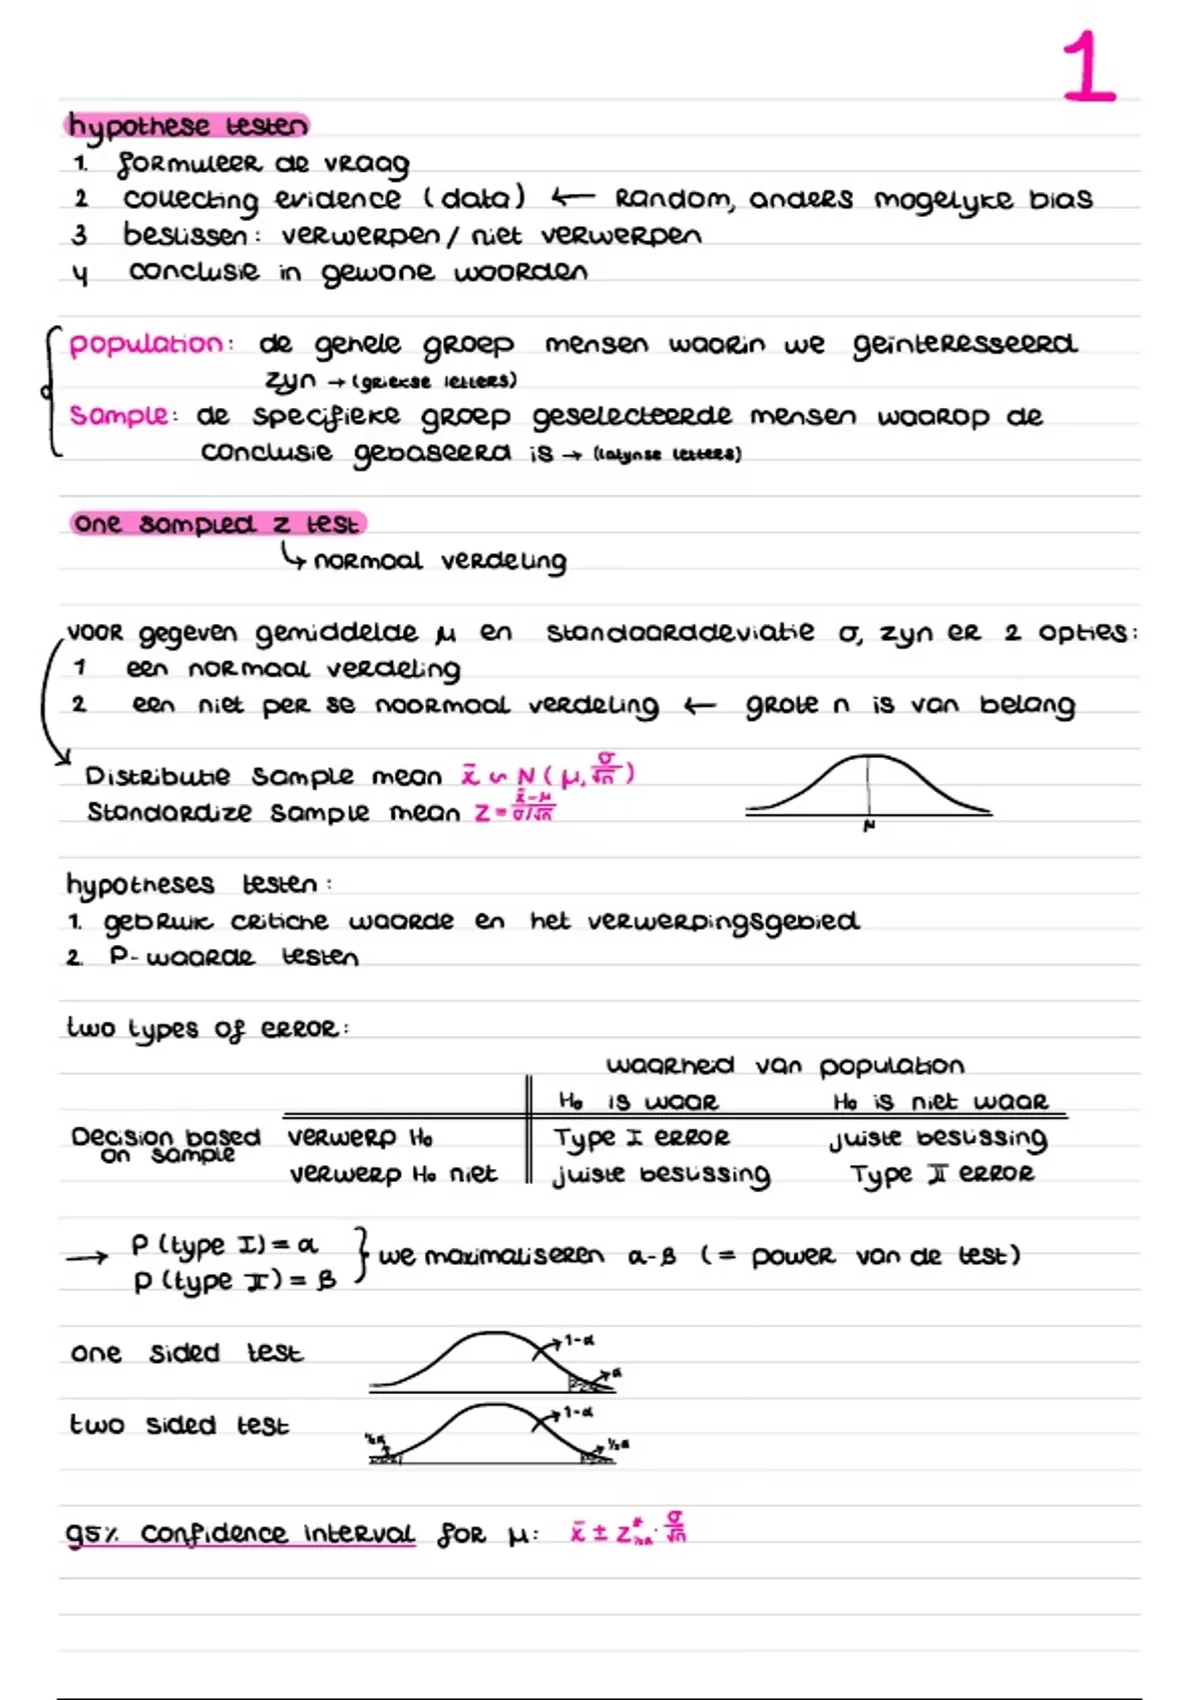 1
hypothese testen
1. formuleer de vraag
2 collecting evidence (data) ← Random, anders mogelyke bias
3 beslissen: verwerpen / niet verwerpen
4 conclusie in gewone woorden
population: de gehele groep mensen waarin we geïnteresseerd
zyn → (griekse letters)
Sample: de specifieke groep geselecteerde mensen waarop de
conclusie gebaseerd is → (latynse letters)
one sampled z test
↳ normaal verdeling
voor gegeven gemiddelde μ en standaarddeviatie σ, zyn er 2 opties:
1 een normaal verdeling
2 een niet per se noormaal verdeling ← grote n is van belang
Distributie sample mean x̄ ∽ N (μ, σ/√n)
Standardize sample mean z = (x̄-μ)/(σ/√n)
μ
hypotheses testen:
1. gebruik critiche waarde en het verwerpingsgebied
2. P-waarde testen
two types of error:
waarheid van population
H₀ is waar H₀ is niet waar
Decision based on sample verwerp H₀ Type I error juiste beslissing
verwerp H₀ niet juiste beslissing Type II error
→ P (type I) = α } we maximaliseren α-β (= power van de test)
P (type II) = β
one sided test 1-α α
two sided test ½α 1-α ½α
95% confidence interval for μ: x̄ ± z* · σ/√n